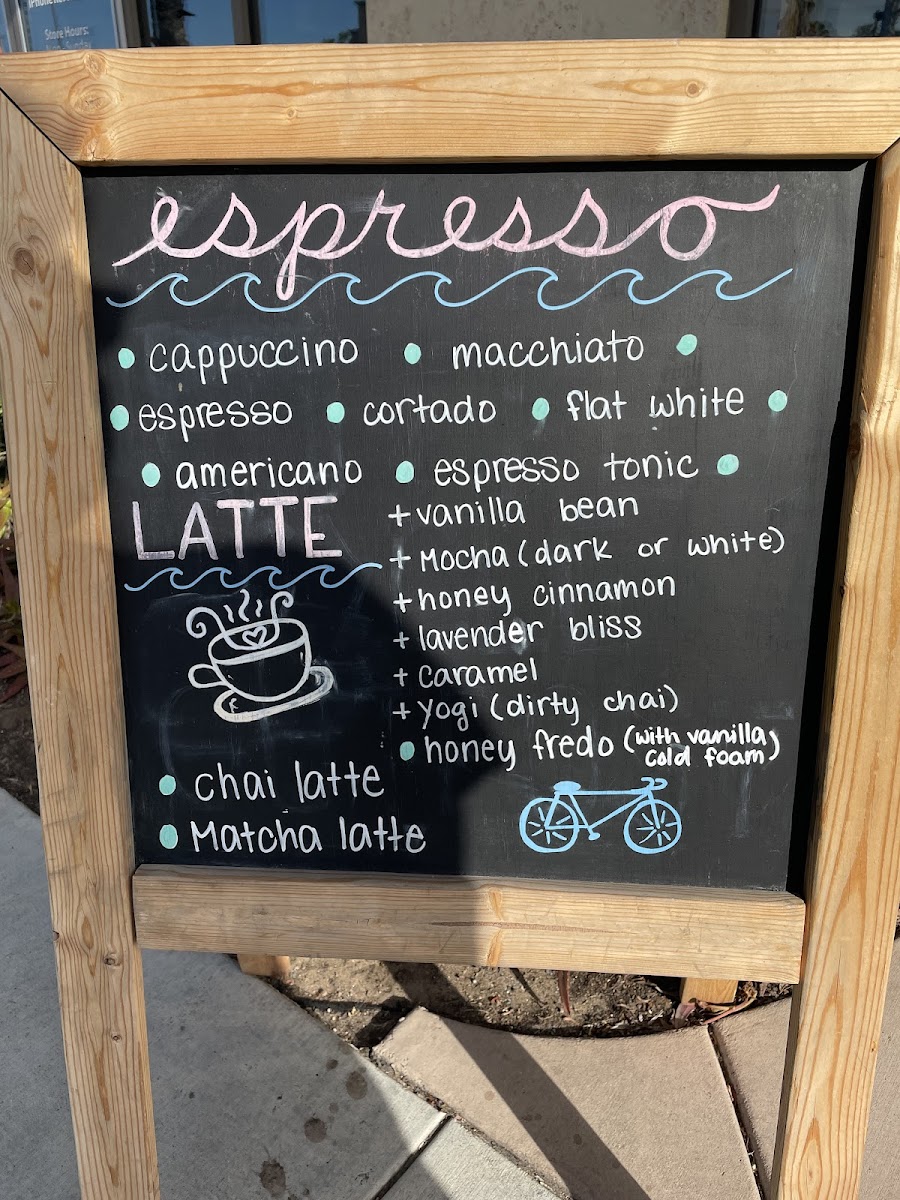 Store Hours:
espresso
• cappuccino • macchiato •
• espresso • cortado • flat white •
• americano • espresso tonic •
LATTE
+ vanilla bean
+ Mocha (dark or white)
+ honey cinnamon
+ lavender bliss
+ caramel
+ yogi (dirty chai)
• honey fredo (with vanilla
cold foam)
• chai latte
• Matcha latte